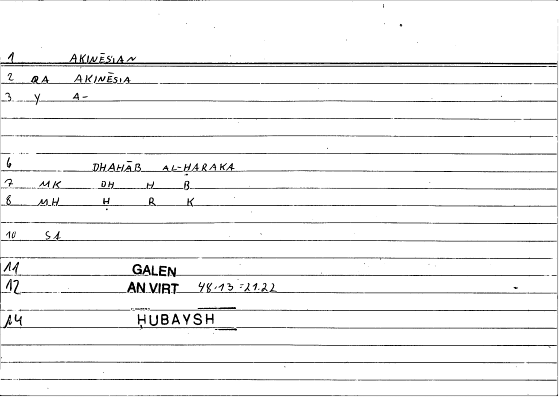 1 AKINĒSIAN
2 QA AKINĒSIA
3 Y A-
6 DHAHĀB AL-ḤARAKA
7 MK DH H B
8 MH Ḥ R K
10 S1
11 GALEN
12 AN VIRT 48.13 = 21.22
14 ḤUBAYSH